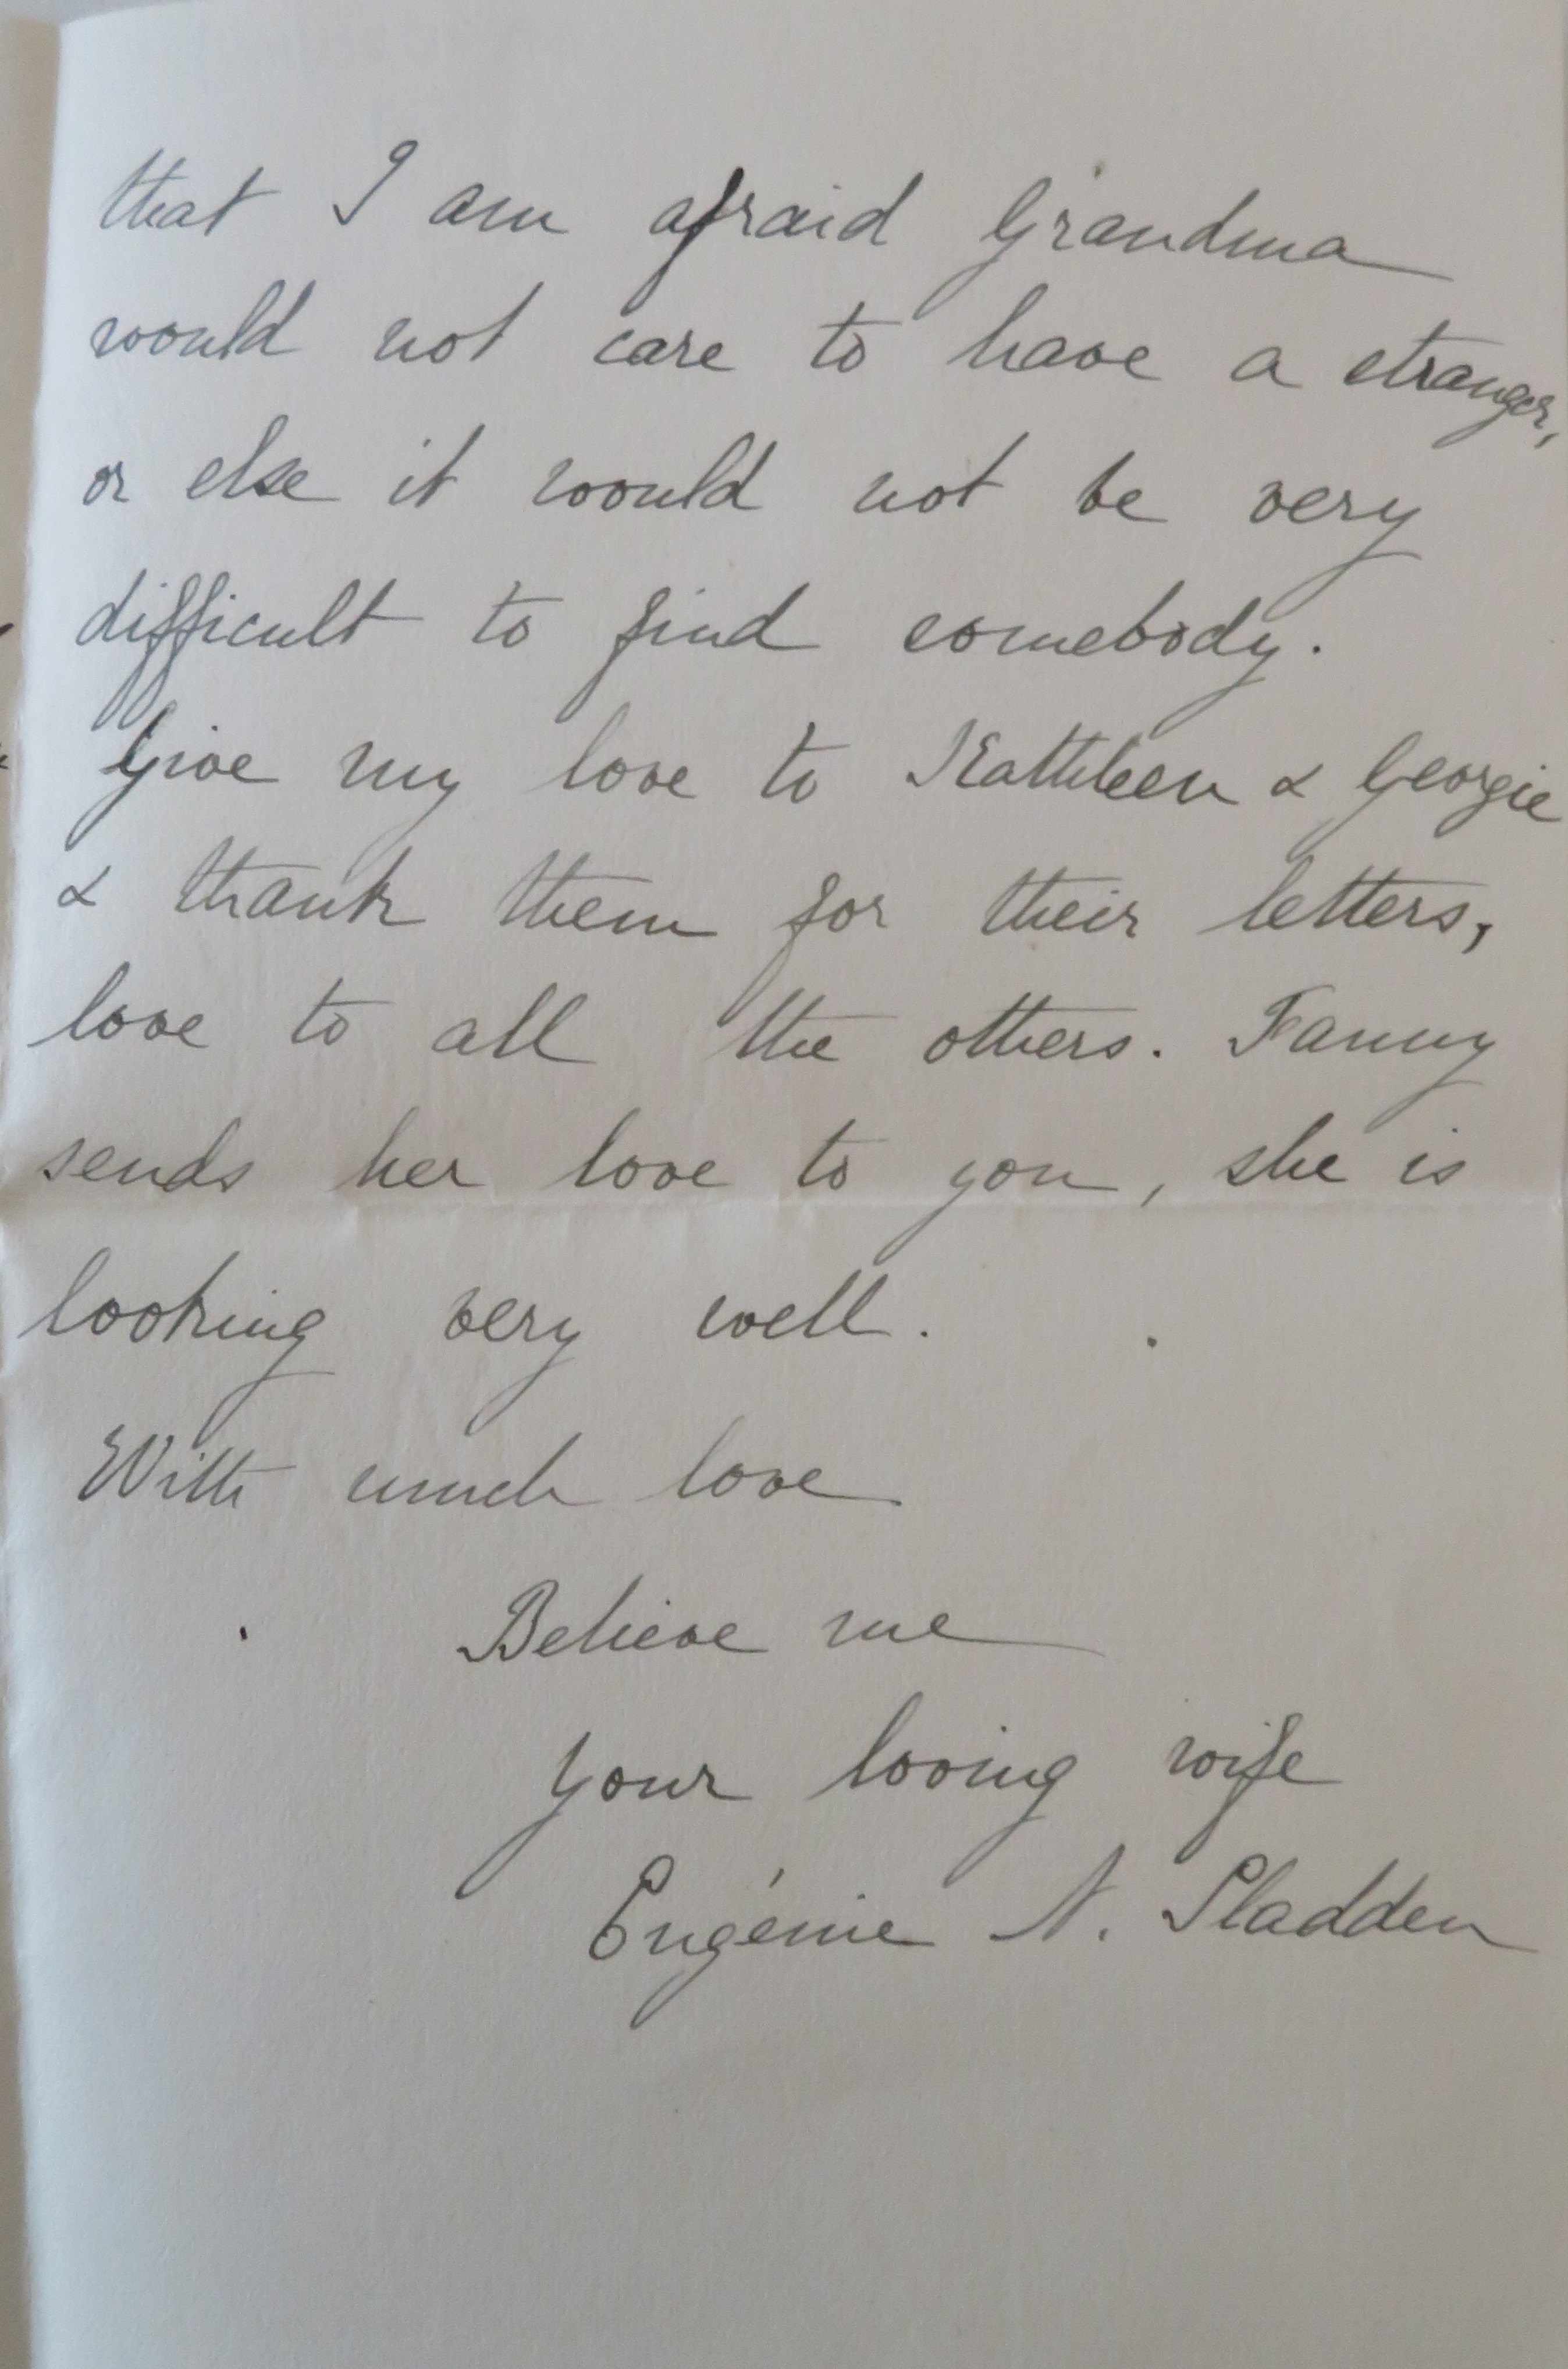 that I am afraid Grandma
would not care to have a stranger,
or else it would not be very
difficult to find somebody.
Give my love to Kathleen & Georgie
& thank them for their letters,
love to all the others. Fanny
sends her love to you, she is
looking very well.
With much love
Believe me
your loving wife
Eugénie N. Sladden